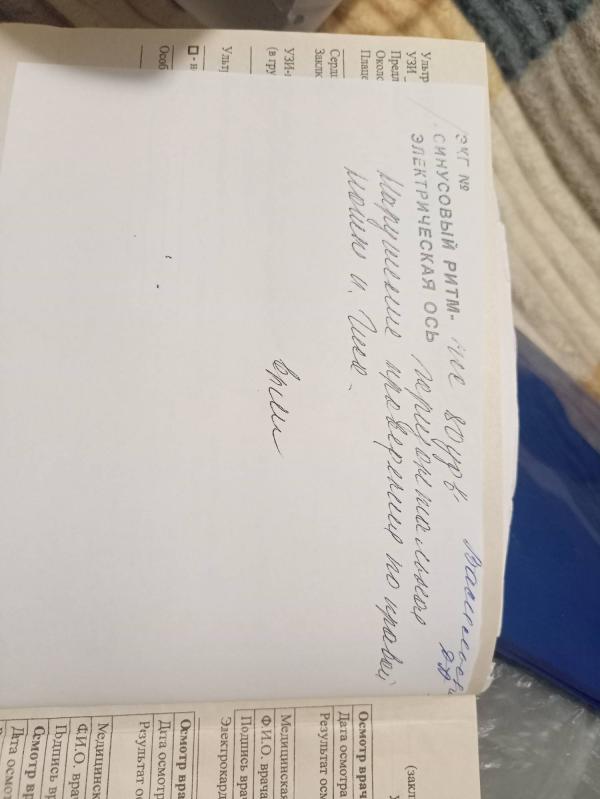 ЭКГ №
СИНУСОВЫЙ РИТМ- чсс 80 уд в'
ЭЛЕКТРИЧЕСКАЯ ОСЬ горизонтальная
Нарушение проведения по правой
ножке п. Гиса.
Ультр
УЗИ
Предл
Около
Плаце
Серд
Заклю
УЗИ-
(в гру
Ульт
- н
Особ
(закл
Осмотр врач
Дата осмотра
Результат осм
Медицинская
Ф.И.О. врача
Подпись вр
Электрокард
Осмотр вра
Дата осмотр
Результат ос
Медицинск
Ф.И.О. врач
Подпись вр
Осмотр вр
Дата осмот